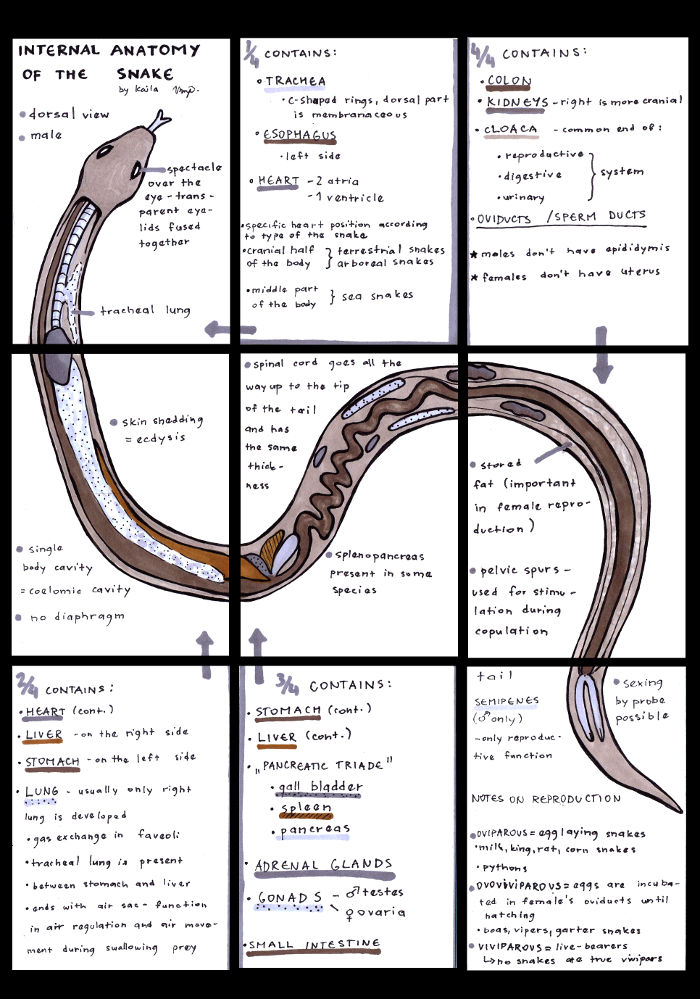 INTERNAL ANATOMY
OF THE SNAKE
by Kaila
dorsal view
male
spectacle
over the
eye - trans-
parent eye-
lids fused
together
tracheal lung
1/4 CONTAINS:
TRACHEA
C-shaped rings, dorsal part
is membranaceous
ESOPHAGUS
left side
HEART - 2 atria
- 1 ventricle
specific heart position according
to type of the snake
cranial half
of the body } terrestrial snakes
arboreal snakes
middle part
of the body } sea snakes
4/4 CONTAINS:
COLON
KIDNEYS - right is more cranial
CLOACA - common end of:
reproductive
digestive } system
urinary
OVIDUCTS / SPERM DUCTS
* males don't have epididymis
* females don't have uterus
skin shedding
= ecdysis
single
body cavity
= coelomic cavity
no diaphragm
spinal cord goes all the
way up to the tip
of the tail
and has
the same
thick-
ness
splenopancreas
present in some
species
stored
fat (important
in female repro-
duction)
pelvic spurs -
used for stimu-
lation during
copulation
2/4 CONTAINS:
HEART (cont.)
LIVER - on the right side
STOMACH - on the left side
LUNG - usually only right
lung is developed
gas exchange in faveoli
tracheal lung is present
between stomach and liver
ends with air sac - function
in air regulation and air move-
ment during swallowing prey
3/4 CONTAINS:
STOMACH (cont.)
LIVER (cont.)
„PANCREATIC TRIADE"
gall bladder
spleen
pancreas
ADRENAL GLANDS
GONADS - ♂ testes
♀ ovaria
SMALL INTESTINE
tail
SEMIPENES
(♂ only)
- only reproduc-
tive function
sexing
by probe
possible
NOTES ON REPRODUCTION
OVIPAROUS = egg laying snakes
milk, king, rat, corn snakes
pythons
OVOVIVIPAROUS = eggs are incuba-
ted in female's oviducts until
hatching
boas, vipers, garter snakes
VIVIPAROUS = live-bearers
↳ no snakes are true vivipars